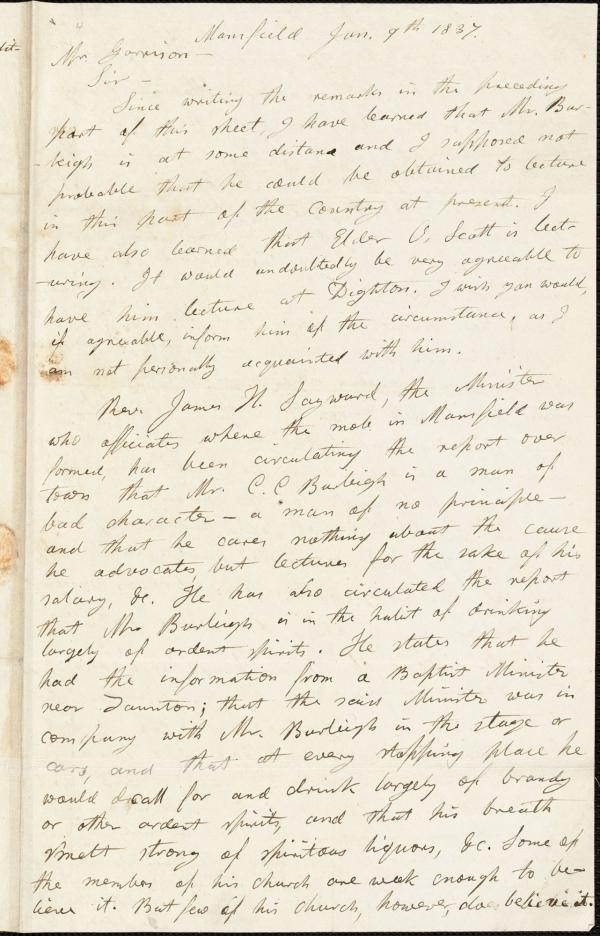 Mansfield Jan. 9th 1837.
Mr. Garrison—
Sir—
Since writing the remarks in the preceding
part of this sheet, I have learned that Mr. Bur-
leigh is at some distance and I supposed not
probable that he could be obtained to lecture
in this part of the country at present. I
have also learned that Elder O. Scott is lect-
uring. It would undoubtedly be very agreeable to
have him lecture at Dighton. I wish you would,
if agreeable, inform him of the circumstance, as I
am not personally acquainted with him.
Rev. James H. Sayward, the Minister
who officiates where the mob in Mansfield was
formed, has been circulating the report over
town that Mr. C. C Burleigh is a man of
bad character — a man of no principle —
and that he cares nothing about the cause
he advocates, but lectures for the sake of his
salary, &c. He has also circulated the report
that Mr Burleigh is in the habit of drinking
largely of ardent spirits. He states that he
had the information from a Baptist Minister
near Taunton; that the said Minister was in
company with Mr. Burleigh in the stage or
cars, and that at every stopping place he
would call for and drink largely of brandy
or other ardent spirits, and that his breath
smelt strong of spiritous liquors, &c. Some of
the members of his church are weak enough to be-
lieve it. But few of his church, however, do believe it.